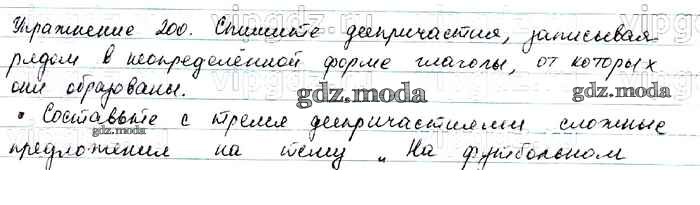 Упражнение 200. Спишите деепричастия, записывая
рядом в неопределённой форме глаголы, от которых
они образованы.
gdz.moda gdz.moda
• Составьте с тремя деепричастиями сложные
gdz.moda
предложения на тему „На футбольном